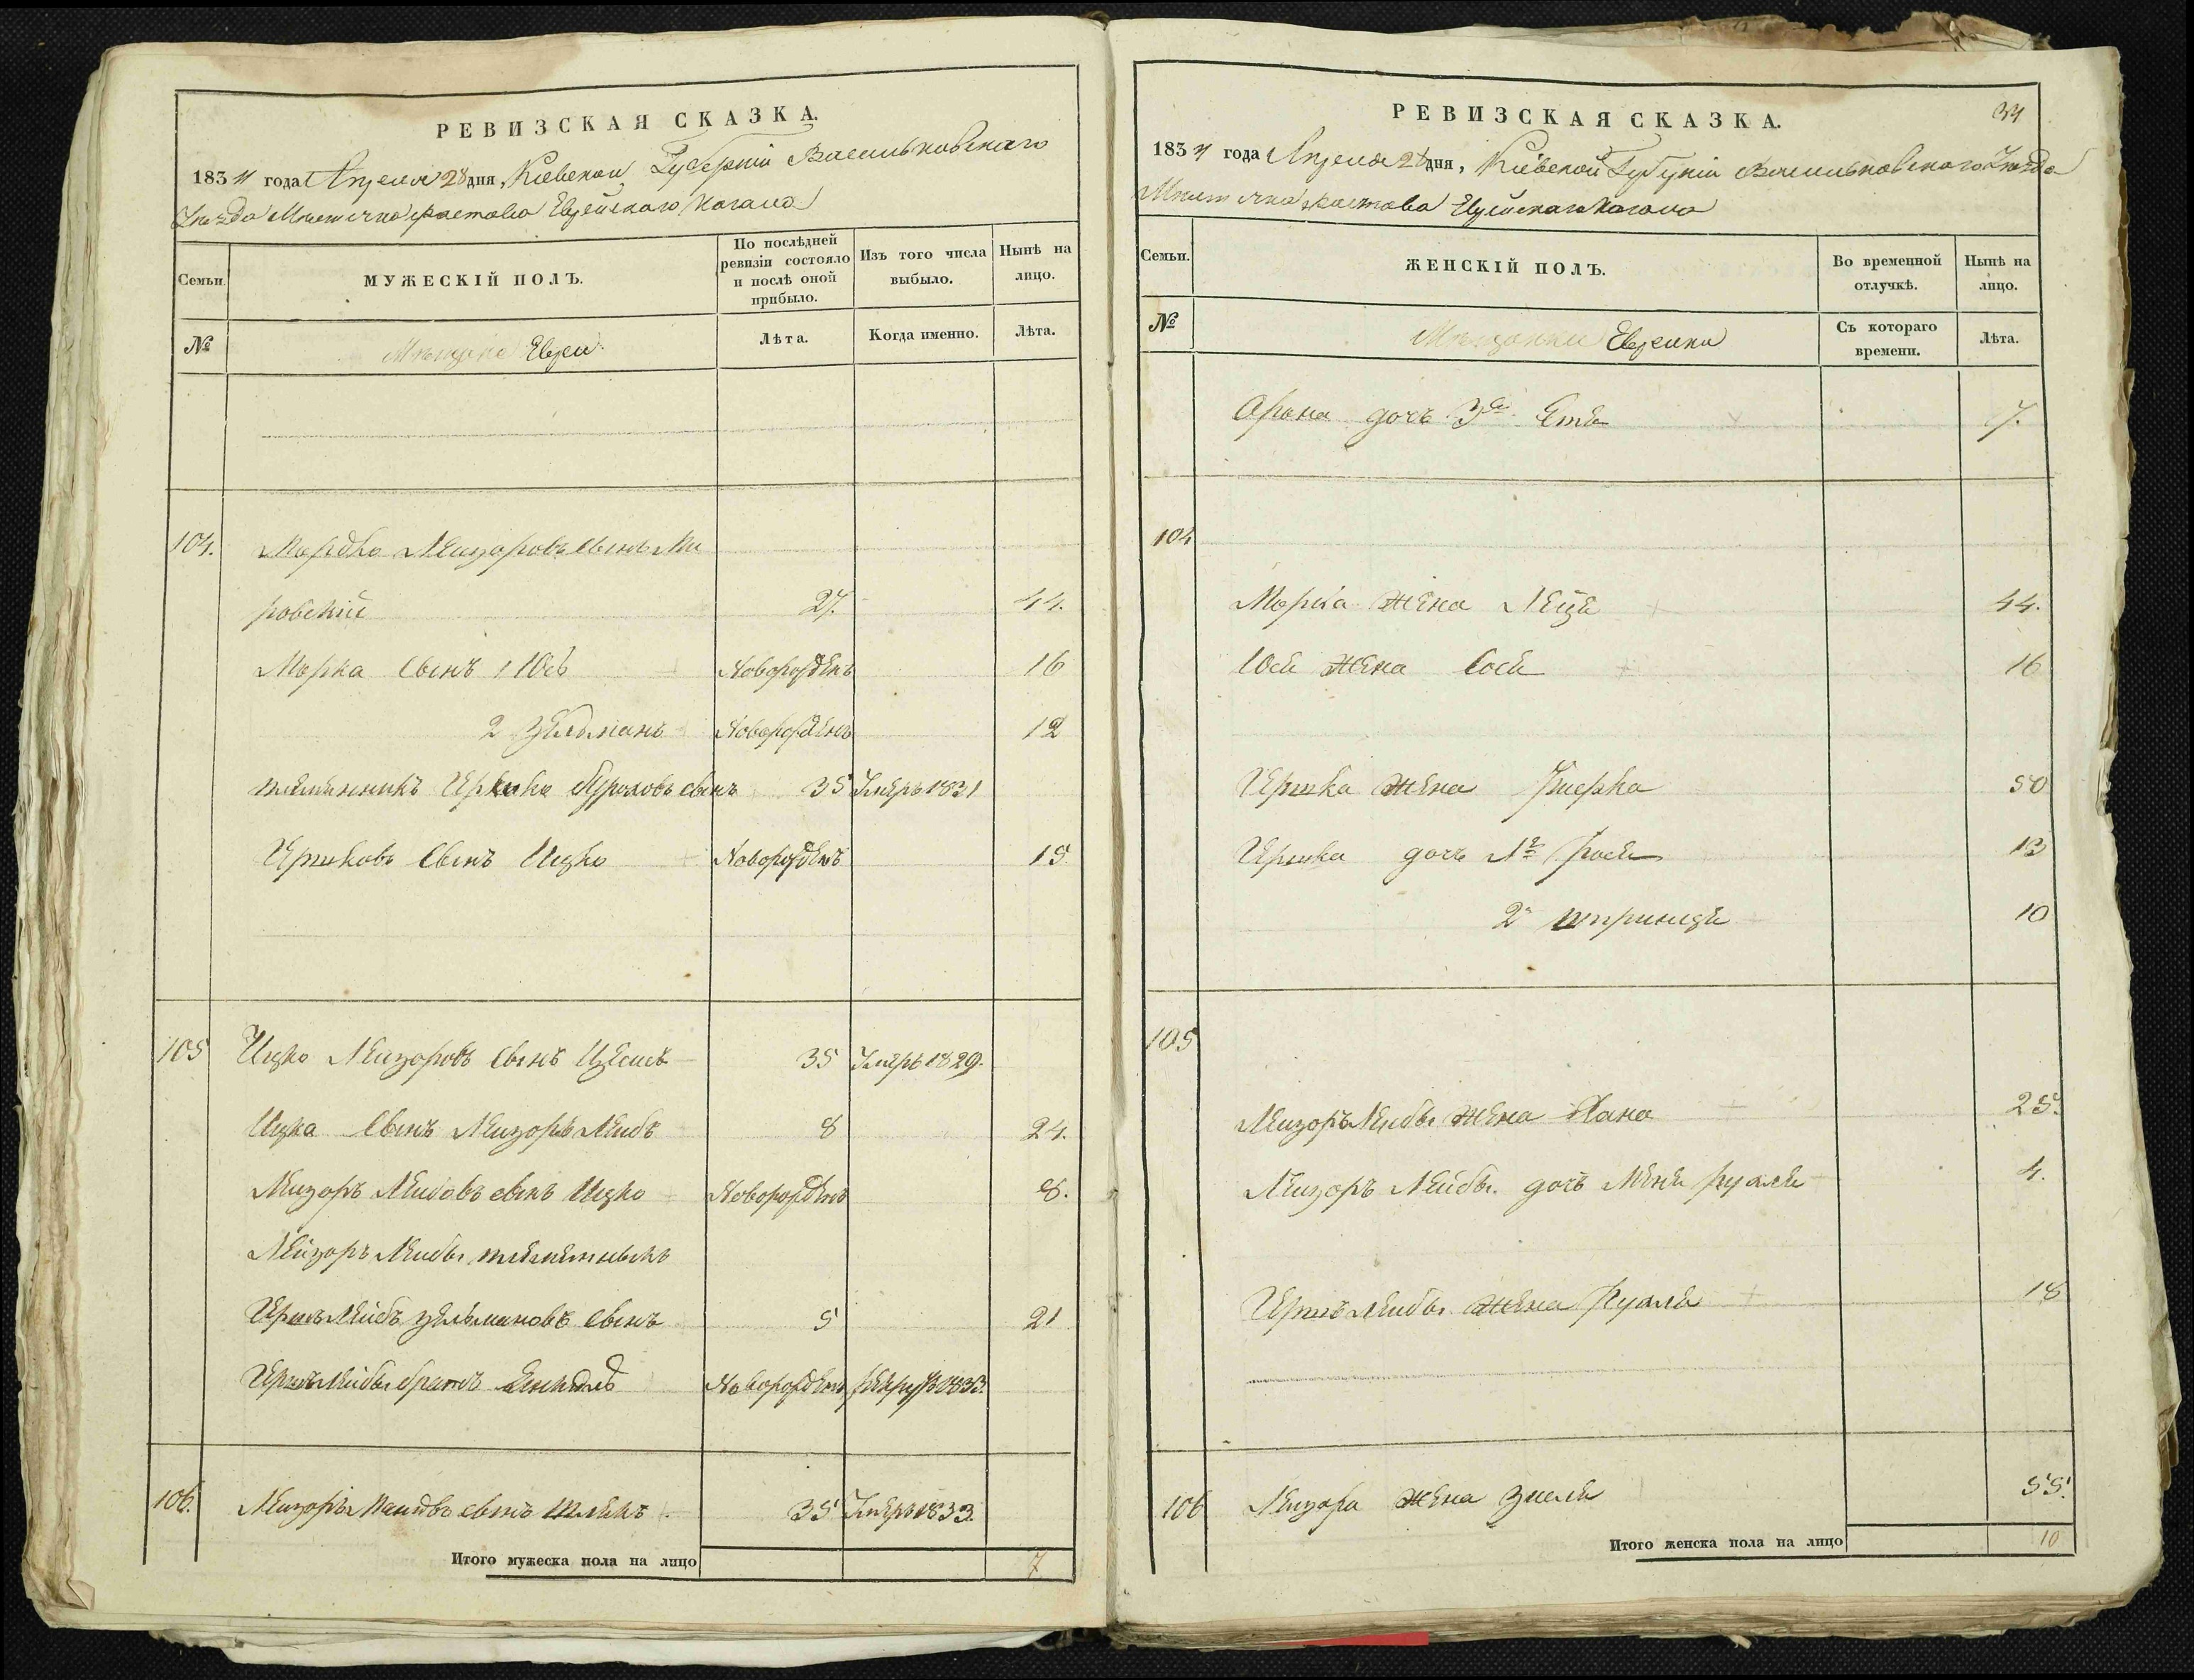 РЕВИЗСКАЯ СКАЗКА.
1834 года Апреля 28 дня, Кіевской Губерніи Васильковскаго
Уезда Местечка Фастова Еврейскаго Кагала
Семьи.
МУЖЕСКІЙ ПОЛЪ.
По послѣдней ревизіи состояло и послѣ оной прибыло.
Изъ того числа выбыло.
Нынѣ на лицо.
№
Мещане Евреи
Лѣта.
Когда именно.
Лѣта.
104. Мордко Лейзоровъ сынъ Ми
ровскій 27. 44.
Мортка сынъ 1 Юсь Новорожденъ 16
2 Зельманъ Новорожденъ 12
племянникъ Гершко сынъ 35 Умеръ 1831
Гершковъ сынъ Ицко Новорожденъ 15
105 Ицко Лейзоровъ сынъ 35 Умеръ 1829.
Ицка сынъ Лейзоръ Лейбъ 8 24.
Лейзоръ Лейбовъ сынъ Ицко Новорожденъ 8.
Лейзоръ Лейбы племенныкъ
Гершъ Лейбъ Зельмановъ сынъ 5 21
Гершъ Лейбы братъ Новорожденъ 1833.
106. Лейзоръ сынъ 35 Умеръ 1833.
Итого мужеска пола на лицо 7
РЕВИЗСКАЯ СКАЗКА.
34
1834 года Апреля 28 дня, Кіевской Губерніи Васильковскаго Уезда
Местечка Фастова Еврейскаго Кагала
Семьи.
ЖЕНСКІЙ ПОЛЪ.
Во временной отлучкѣ.
Нынѣ на лицо.
№
Мещанки Еврейки
Съ котораго времени.
Лѣта.
Арона дочь 3я Етя 7.
104
Жена 44.
Юся жена Сося 16
Гершка жена 50
Гершка дочь 1я Рося 13
2я Шпринця 10
105
Лейзоръ Лейбы жена Хана 25.
Лейзоръ Лейбы дочь Рухля 4.
Гершъ Лейбы жена Рухля 18
106 Лейзора жена 55.
Итого женска пола на лицо 10